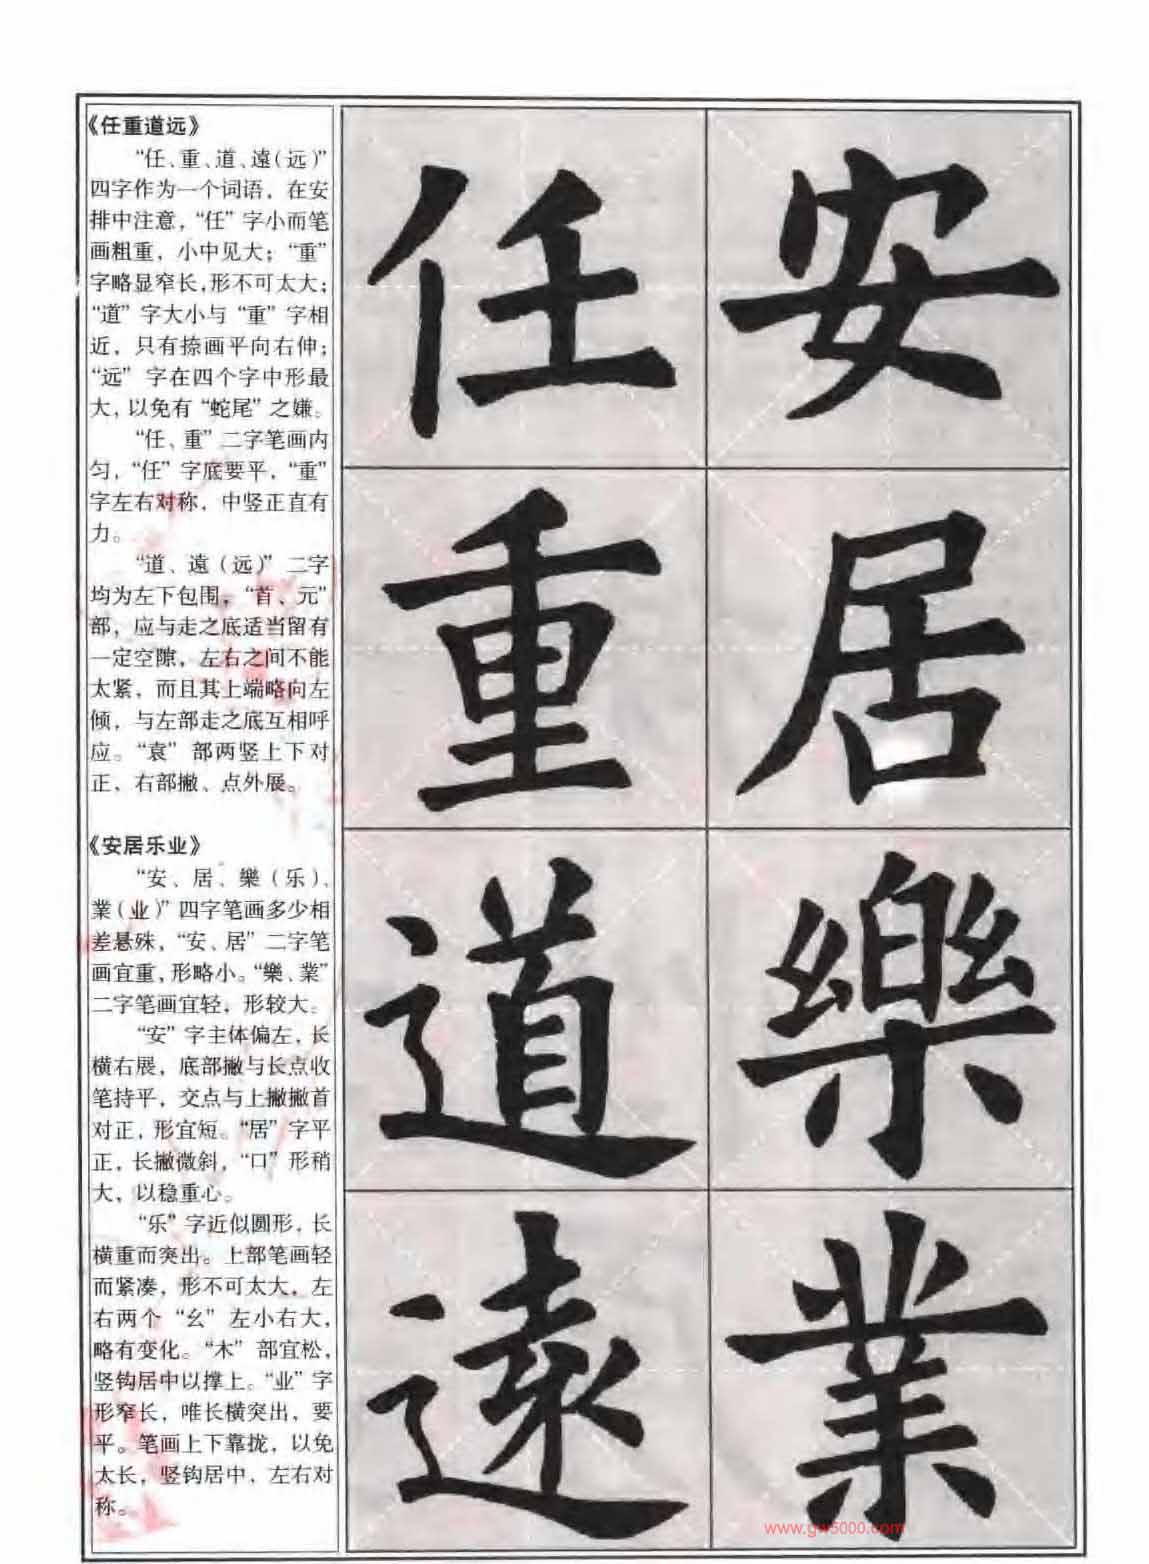 《任重道远》
“任、重、道、遠(远)”
四字作为一个词语，在安
排中注意，“任”字小而笔
画粗重，小中见大；“重”
字略显窄长，形不可太大；
“道”字大小与“重”字相
近，只有捺画平向右伸；
“远”字在四个字中形最
大，以免有“蛇尾”之嫌。
“任、重”二字笔画内
匀，“任”字底要平，“重”
字左右对称，中竖正直有
力。
“道、遠(远)”二字
均为左下包围，“首、元”
部，应与走之底适当留有
一定空隙，左右之间不能
太紧，而且其上端略向左
倾，与左部走之底互相呼
应。“袁”部两竖上下对
正，右部撇、点外展。
《安居乐业》
“安、居、樂(乐)、
業(业)”四字笔画多少相
差悬殊，“安、居”二字笔
画宜重，形略小。“樂、業”
二字笔画宜轻，形较大。
“安”字主体偏左，长
横右展，底部撇与长点收
笔持平，交点与上撇撇首
对正，形宜短。“居”字平
正，长撇微斜，“口”形稍
大，以稳重心。
“乐”字近似圆形，长
横重而突出。上部笔画轻
而紧凑，形不可太大，左
右两个“幺”左小右大，
略有变化。“木”部宜松，
竖钩居中以撑上。“业”字
形窄长，唯长横突出，要
平。笔画上下靠拢，以免
太长，竖钩居中，左右对
称。
任
重
道
遠
安
居
樂
業
www.gw5000.com